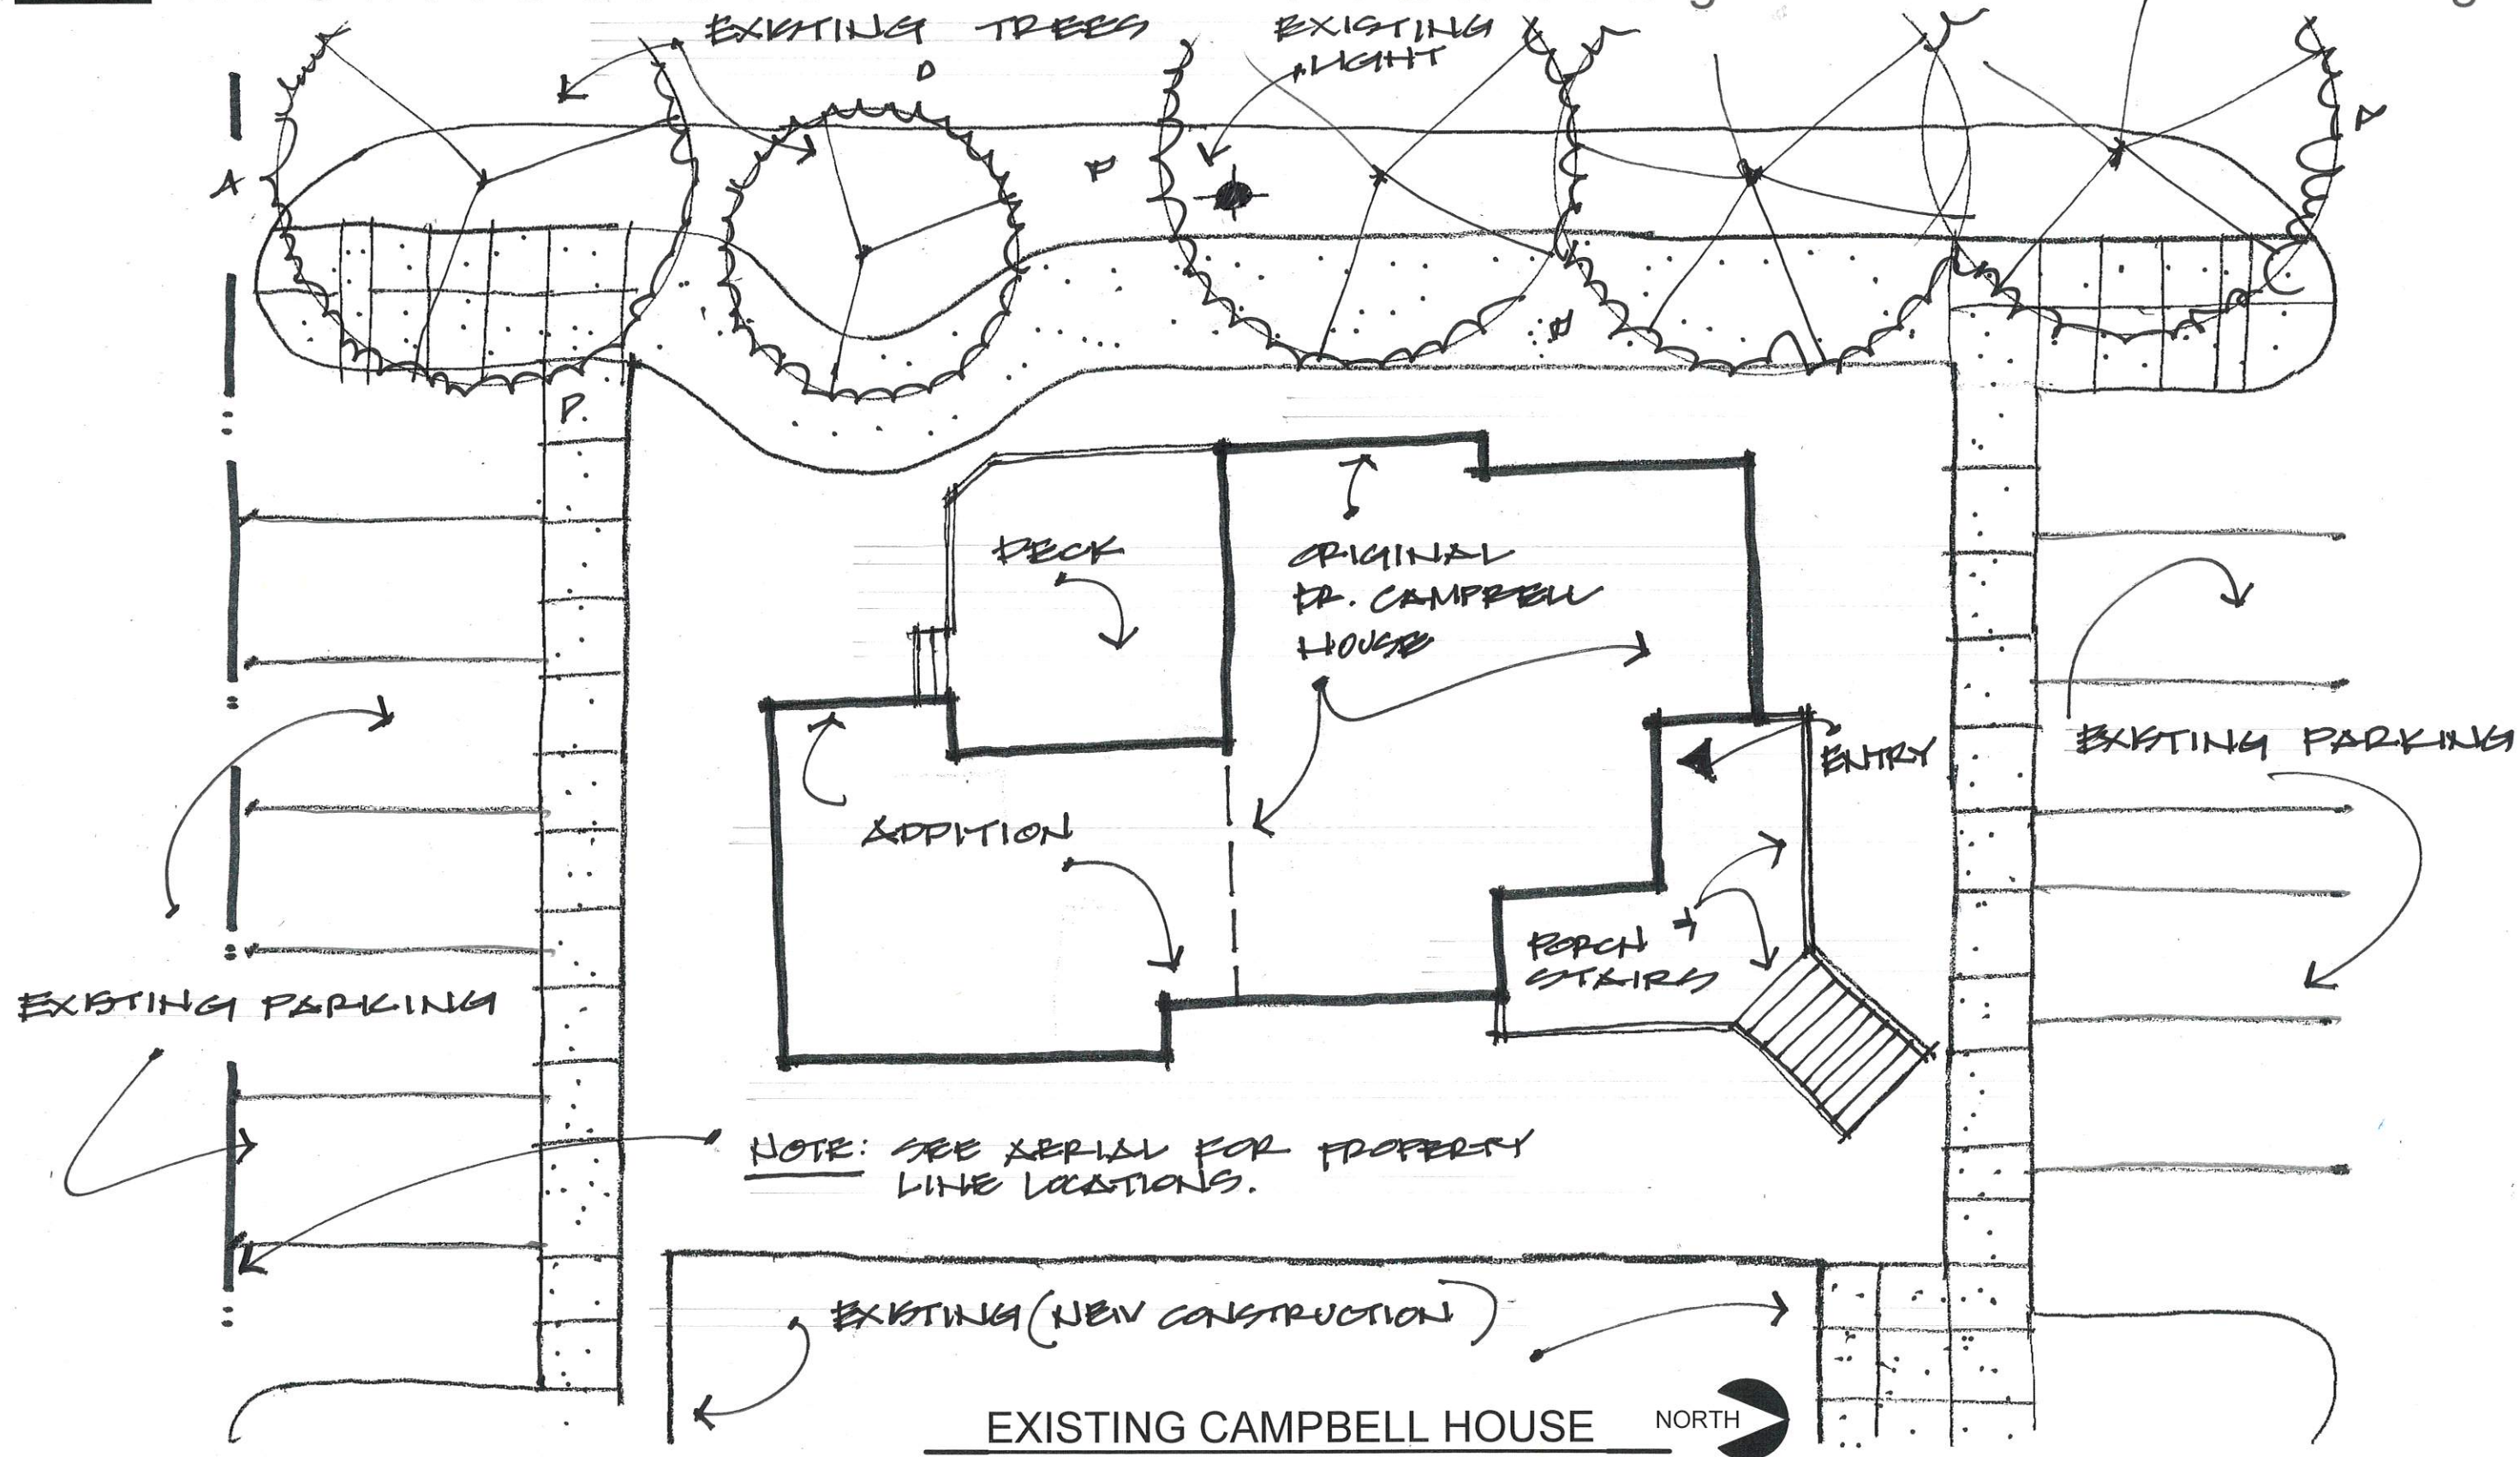 EXISTING TREES
EXISTING
LIGHT
DECK
ORIGINAL
DR. CAMPBELL
HOUSE
ENTRY
EXISTING PARKING
ADDITION
PORCH +
STAIRS
EXISTING PARKING
NOTE: SEE AERIAL FOR PROPERTY
LINE LOCATIONS.
EXISTING (NEW CONSTRUCTION)
EXISTING CAMPBELL HOUSE
NORTH